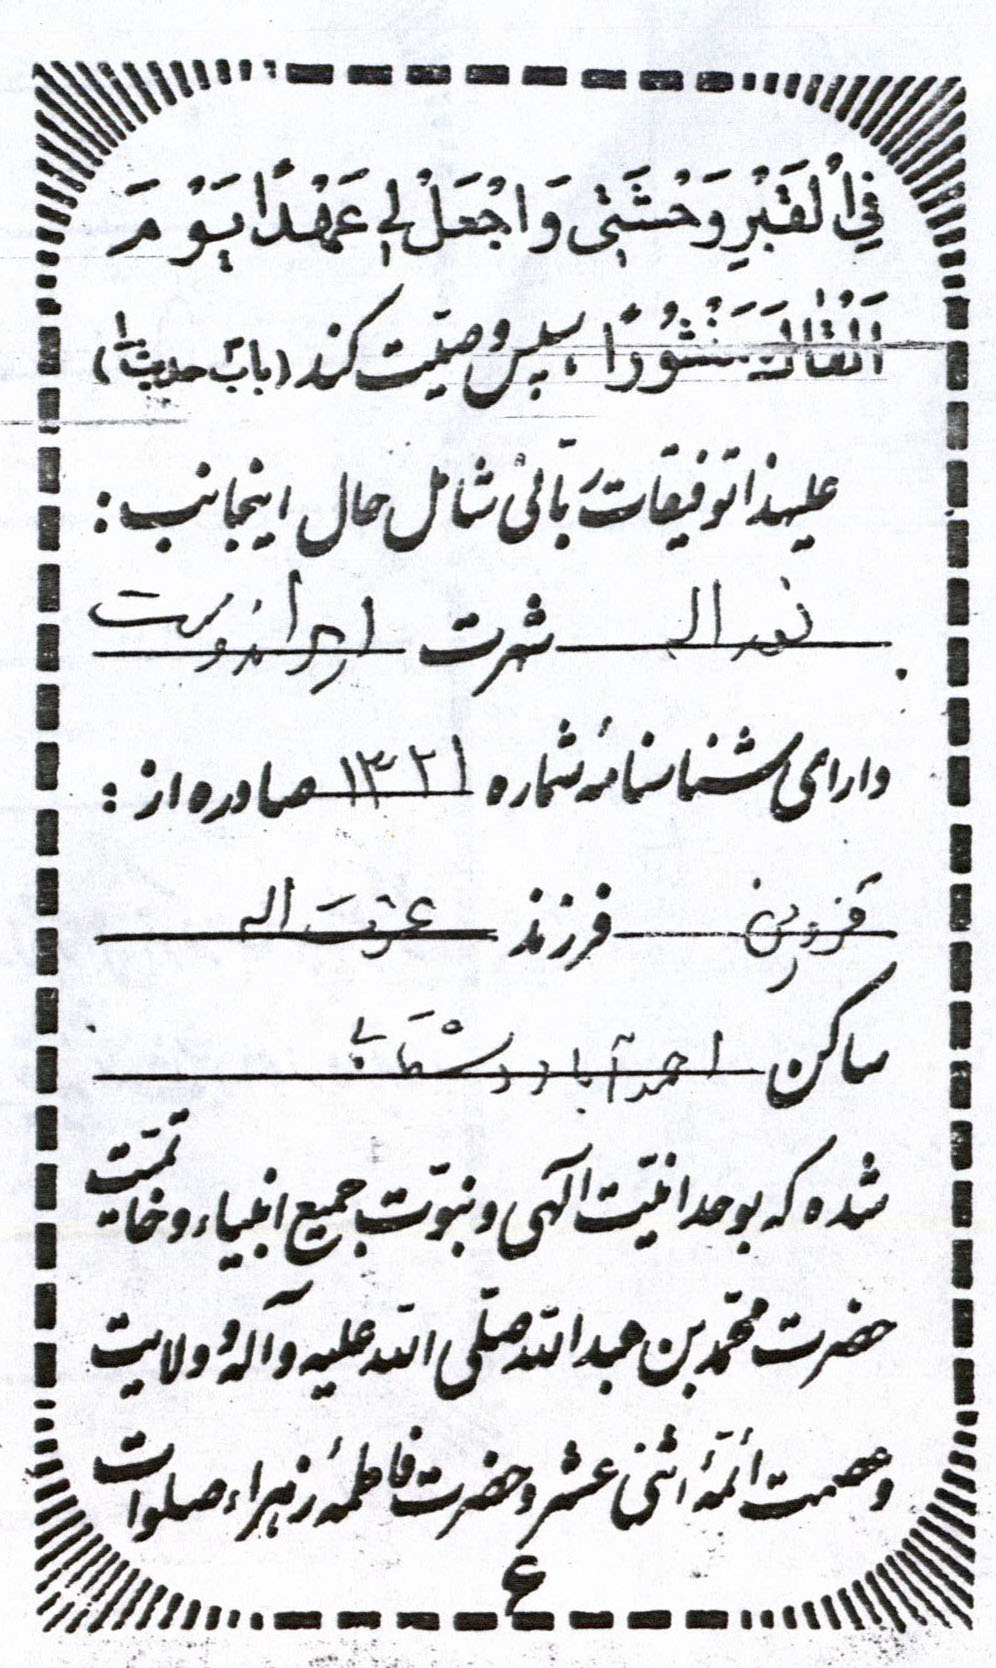 فِي الْقَبْرِ وَحْشَتِي وَاجْعَلْ لِي عَهْدًا يَوْمَ
اَلْقَاكَ مَنْشُورًا، سپس وصیّت کند (باب حدیث)
علیهذا توفیقات ربّانی شامل حال اینجانب:
نوراله شهرت ایراندوست
دارای شناسنامهٔ شماره ۱۳۲۱ صادره از:
قزوین فرزند عزت اله
ساکن احمدآباد
شده که بوحدانیّت الهی و نبوّت جمیع انبیاء و خاتمیّت
حضرت محمّد بن عبدالله صلّی الله علیه و آله و ولایت
و عصمت ائمّهٔ اثنی عشر و حضرت فاطمهٔ زهراء صلوات
۴